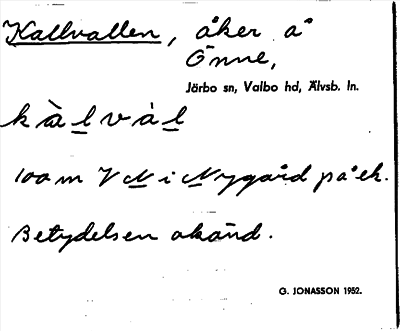 Kallvallen, åker å
Önne,
Järbo sn, Valbo hd, Älvsb. ln.
k à l v á l
100 m V N i Nygård på ek.
Betydelsen okänd.
G. JONASSON 1952.